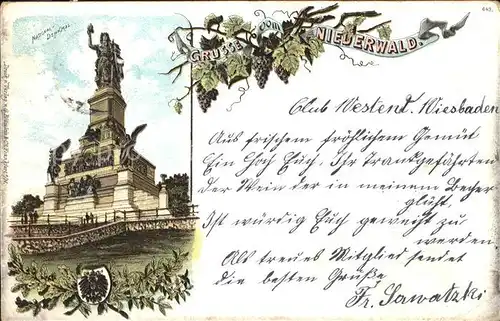 National
Denkmal
443.
GRÜSSE vom NIEDERWALD.
Club Westend. Wiesbaden
Aus frischem fröhlichem Gemüt
Ein Hoch Euch. Ihr Trankgefährten
Der Wein der in meinem Becher
glüht,
Ist würdig Euch geweiht zu
werden
Als treues Mitglied sendet
die besten Grüße
Fr. Sawatzki